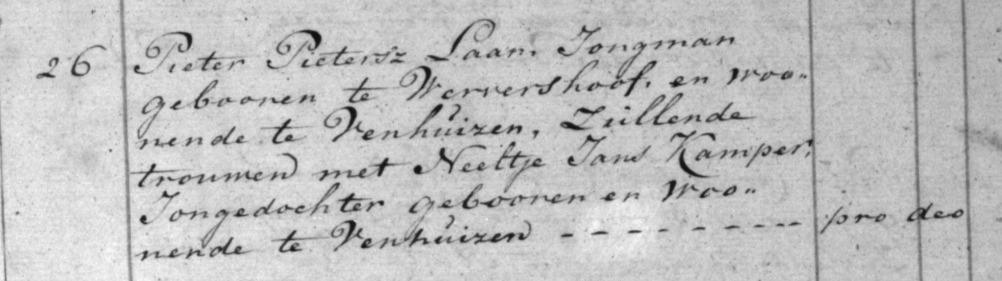 26 Pieter Pietersz Laam Jongman
gebooren te Wervershoof, en woo„
nende te Venhuizen, Zúllende
trouwen met Neeltje Jans Kamper,
Jongedochter gebooren en woo„
nende te Venhúizen - - - - - - - - - pro deo